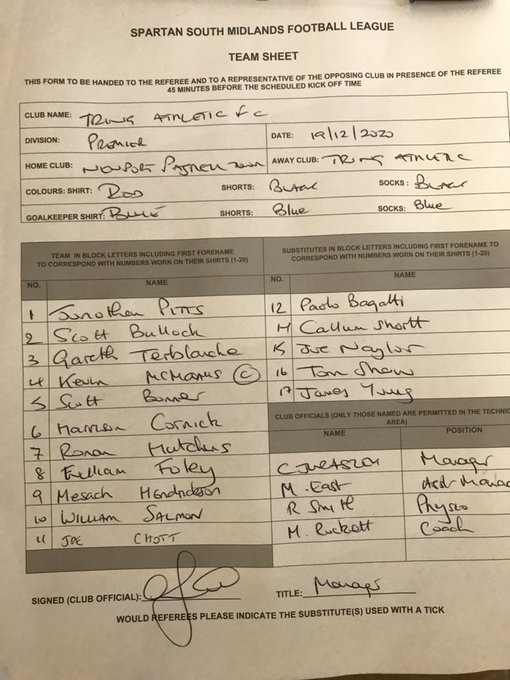 SPARTAN SOUTH MIDLANDS FOOTBALL LEAGUE
TEAM SHEET
THIS FORM TO BE HANDED TO THE REFEREE AND TO A REPRESENTATIVE OF THE OPPOSING CLUB IN PRESENCE OF THE REFEREE
45 MINUTES BEFORE THE SCHEDULED KICK OFF TIME
CLUB NAME: TRING ATHLETIC FC
DIVISION: PREMIER DATE: 19/12/2020
HOME CLUB: NEWPORT PAGNELL TOWN AWAY CLUB: TRING ATHLETIC
COLOURS: SHIRT: RED SHORTS: BLACK SOCKS: BLACK
GOALKEEPER SHIRT: BLUE SHORTS: Blue SOCKS: Blue
TEAM IN BLOCK LETTERS INCLUDING FIRST FORENAME
TO CORRESPOND WITH NUMBERS WORN ON THEIR SHIRTS (1-20)
NO. NAME
1 Jonathan PITTS
2 Scott Bullock
3 Gareth Terblanche
4 Kevin McMANUS C
5 Scott
6 Harrison Cornick
7 Ronan Hutchins
8 Foley
9 Mesach Hendrickson
10 WILLIAM SALMON
11 JOE CHOTT
SUBSTITUTES IN BLOCK LETTERS INCLUDING FIRST FORENAME TO
CORRESPOND WITH NUMBERS WORN ON THEIR SHIRTS (1-20)
NO. NAME
12 Paolo Bagatti
14 Callum Shortt
15 Joe Naylor
16 Tom Shaw
17 James Young
CLUB OFFICIALS (ONLY THOSE NAMED ARE PERMITTED IN THE TECHNIC
AREA)
NAME POSITION
Manager
M. East Asst Manag
R Smith Physio
M. Rockett Coach
SIGNED (CLUB OFFICIAL): TITLE: Manager
WOULD REFEREES PLEASE INDICATE THE SUBSTITUTE(S) USED WITH A TICK